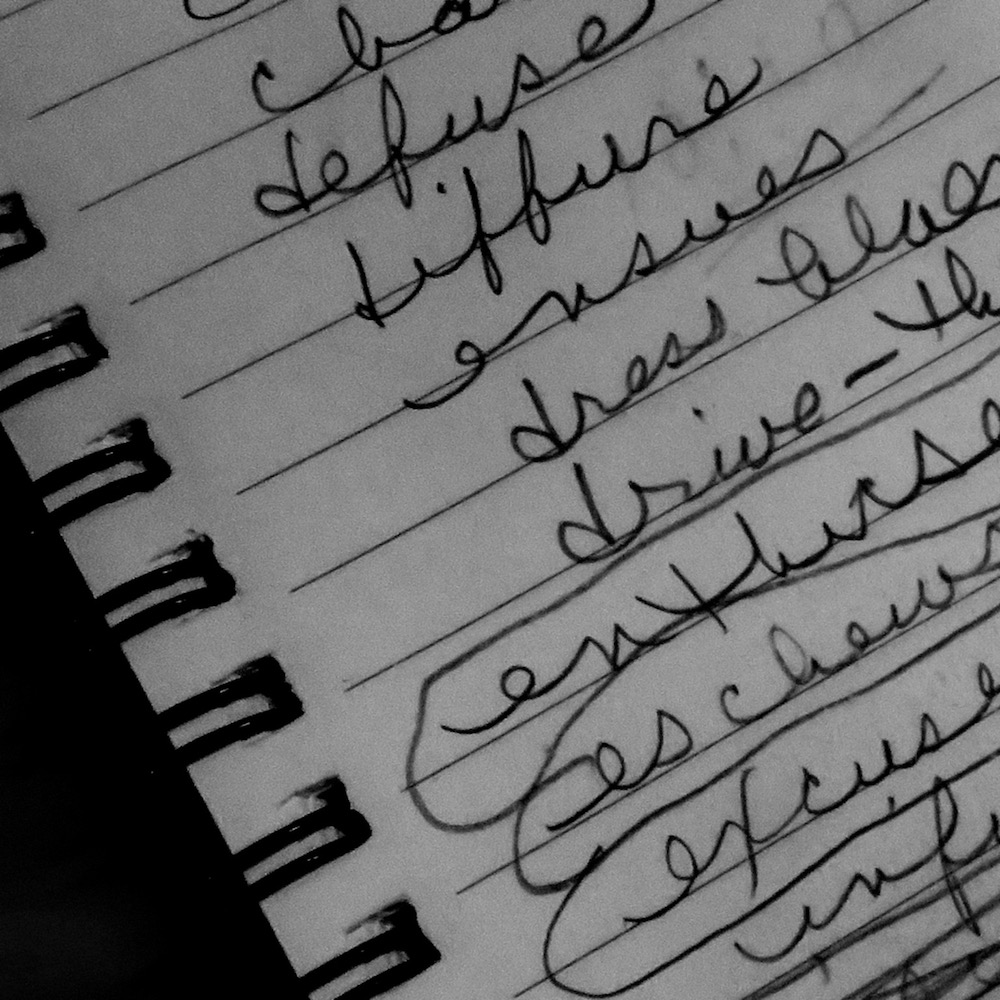 defuse
diffuse
ensues
dress
drive-th
enthuse
eschew
excuse